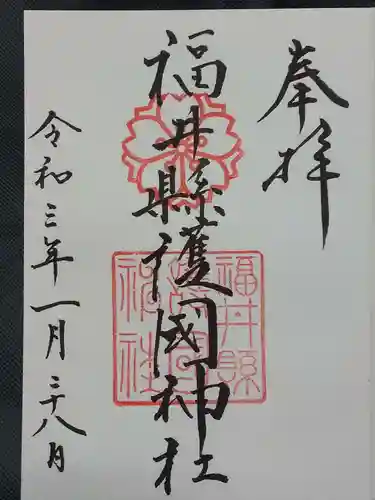 奉拝
福井縣護國神社
福井縣
護國
神社
令和三年一月二十八月